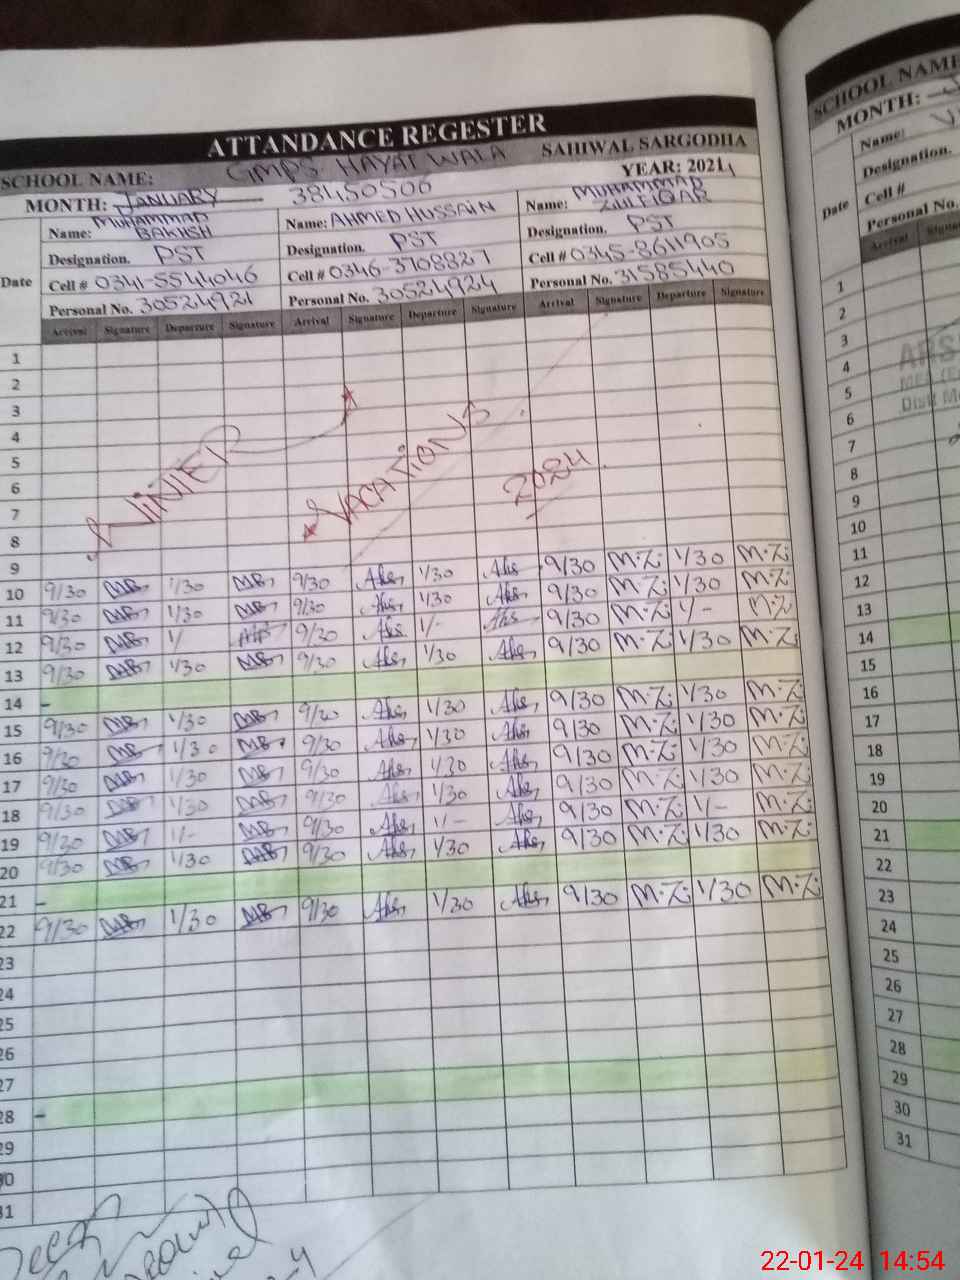 ATTANDANCE REGESTER
SCHOOL NAME: GMPS HAYAT WALA SAHIWAL SARGODHA
MONTH: JANUARY 38450506 YEAR: 2024
Date
Name: MUHAMMAD BAKHSH
Designation. PST
Cell # 0341-5544046
Personal No. 30524921
Name: AHMED HUSSAIN
Designation. PST
Cell # 0346-3708827
Personal No. 30524924
Name: MUHAMMAD ZULFIQAR
Designation. PST
Cell # 0345-8611905
Personal No. 31585440
Arrival Signature Departure Signature Arrival Signature Departure Signature Arrival Signature Departure Signature
1
2
3
4
5
6
7
8
WINTER VACATIONS 2024
9
10 9/30 MB 1/30 MB 9/30 Ahs 1/30 Ahs 9/30 M.Z. 1/30 M.Z.
11 9/30 MB 1/30 MB 9/30 Ahs 1/30 Ahs 9/30 M.Z. 1/30 M.Z.
12 9/30 MB 1/ MB 9/30 Ahs 1/- Ahs 9/30 M.Z 1/- M.Z
13 9/30 MB 1/30 MB 9/30 Ahs 1/30 Ahs 9/30 M.Z. 1/30 M.Z.
14 -
15 9/30 MB 1/30 MB 9/30 Ahs 1/30 Ahs 9/30 M.Z. 1/30 M.Z.
16 9/30 MB 1/30 MB 9/30 Ahs 1/30 Ahs 9/30 M.Z. 1/30 M.Z.
17 9/30 MB 1/30 MB 9/30 Ahs 1/30 Ahs 9/30 M.Z. 1/30 M.Z.
18 9/30 MB 1/30 MB 9/30 Ahs 1/30 Ahs 9/30 M.Z. 1/30 M.Z.
19 9/30 MB 1/- MB 9/30 Ahs 1/- Ahs 9/30 M.Z. 1/- M.Z.
20 9/30 MB 1/30 MB 9/30 Ahs 1/30 Ahs 9/30 M.Z. 1/30 M.Z.
21 -
22 9/30 MB 1/30 MB 9/30 Ahs 1/30 Ahs 9/30 M.Z. 1/30 M.Z.
23
24
25
26
27
28 -
29
30
31
SCHOOL NAME
MONTH:
Name:
Designation.
Cell #
Personal No.
Date
Arrival
1
2
3
4
5
6
7
8
9
10
11
12
13
14
15
16
17
18
19
20
21
22
23
24
25
26
27
28
29
30
31
22-01-24 14:54